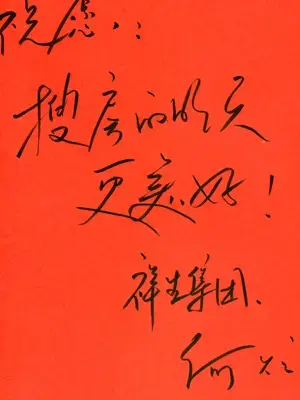 祝愿：
搜房的明天
更美好！
祥生集团.
何